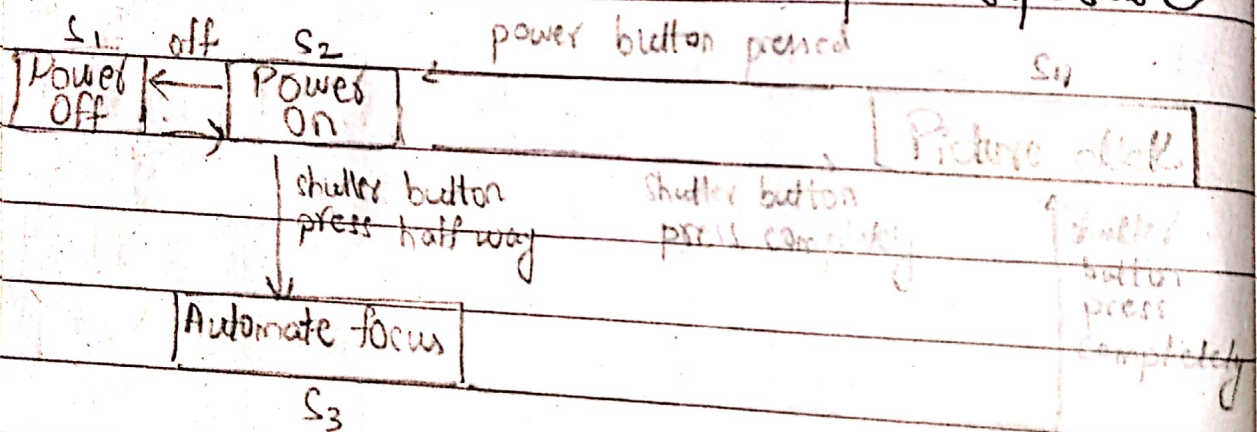 S1 off S2 power button pressed
Power Off
Power On
S4
Picture
shutter button press half way
Shutter button press completely
shutter button press completely
Automate focus
S3